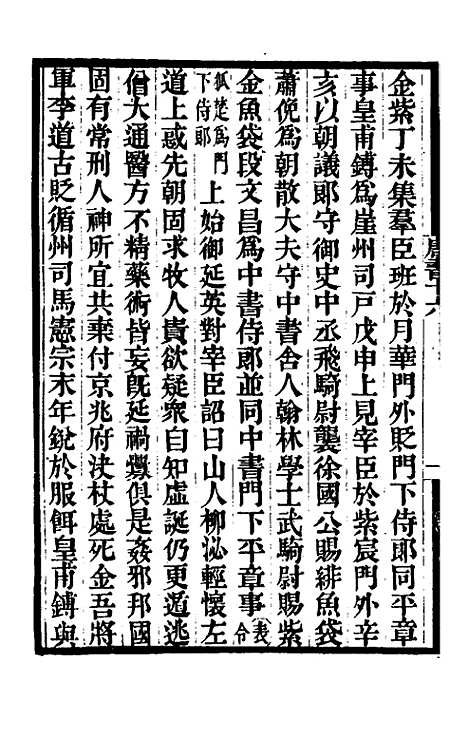 金紫丁未集羣臣班於月華門外貶門下侍郎同平章
事皇甫鎛爲崖州司戸戊申上見宰臣於紫宸門外辛
亥以朝議郎守御史中丞飛騎尉襲徐國公賜緋魚袋
蕭俛爲朝散大夫守中書舍人翰林學士武騎尉賜紫
金魚袋段文昌爲中書侍郎並同中書門下平章事令
狐楚爲門
下侍郎上始御延英對宰臣詔曰山人柳泌輕懷左
道上惑先朝固求牧人貴欲疑衆自知虛誕仍更遁逃
僧大通醫方不精藥術皆妄旣延禍釁俱是姦邪邦國
固有常刑人神所宜共棄付京兆府決杖處死金吾將
軍李道古貶循州司馬憲宗末年銳於服餌皇甫鎛與